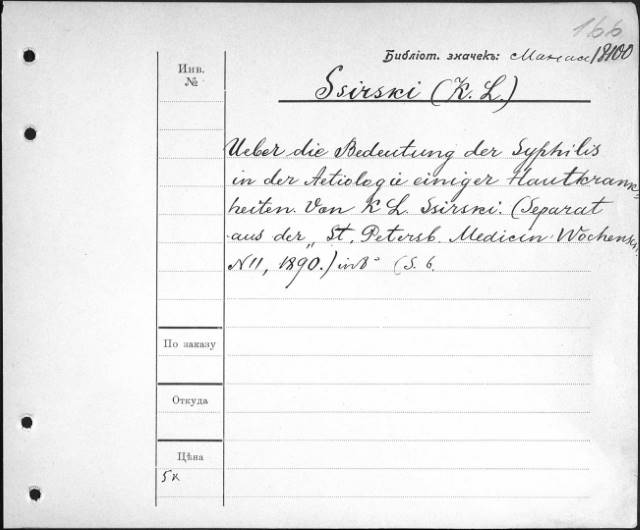 166
Библіот. значекъ: 18100
Инв.
№
Ssirski (K. L.)
Ueber die Bedeutung der Syphilis
in der Aetiologie einiger Hautkrank=
heiten. Von K. L. Ssirski. (Separat
aus der „St. Petersb. Medicin Wochensc.
N 11, 1890.) in 8° (S. 6.
По заказу
Откуда
Цѣна
5к